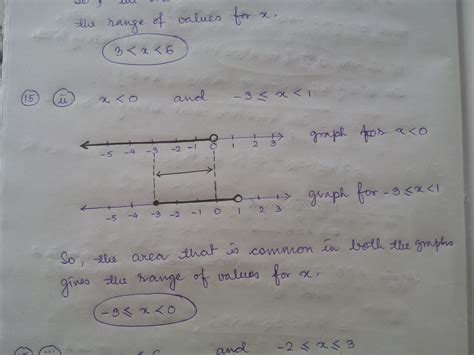 the range of values for x.
3 < x < 6
15 ii x < 0 and -3 ≤ x < 1
-5 -4 -3 -2 -1 0 1 2 3 graph for x < 0
-5 -4 -3 -2 -1 0 1 2 3 graph for -3 ≤ x < 1
So, the area that is common in both the graphs
gives the range of values for x.
-3 ≤ x < 0
and -2 ≤ x ≤ 3